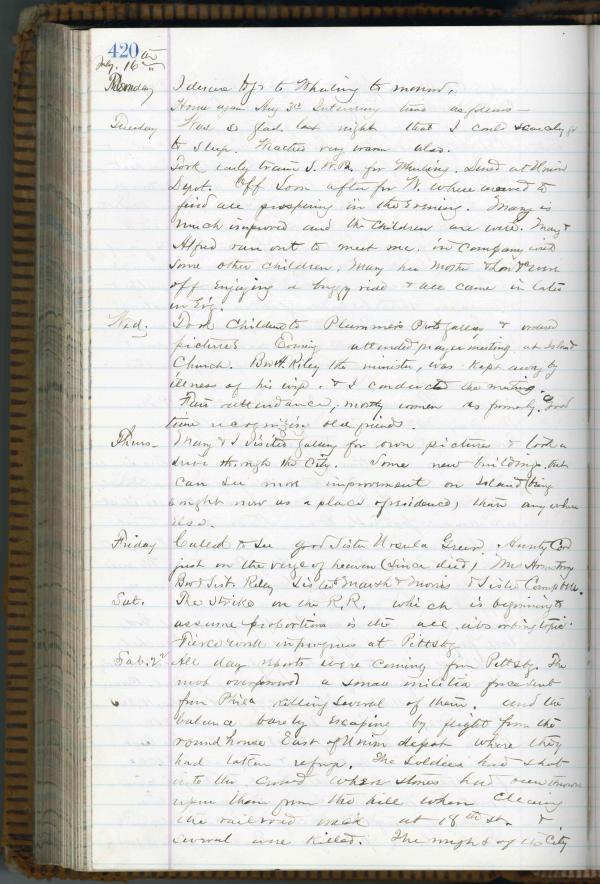 420
July. 16th
Monday I desire to go to Wheeling to morrow.
Home again Aug 3d Intervening time as follows —
Tuesday Was so glad last night that I could scarcely go
to sleep. Weather very warm also.
Took early train S. W. R. for Wheeling. Dined at Union
Depot. Off soon after for W. where arrived to
find all prospering in the Evening. Mary is
much improved and the children are well. Mary &
Alfred ran out to meet me, in company with
some other children; Mary her Mother & were
off enjoying a buggy ride & all came in later
in Ev'g.
Wed. Took Children to Plummer's Photo gallery & ordered
pictures Evening attended prayer meeting at Island
Church. Bro H. Riley the minister, was kept away by
illness of his wife. & I conducted the meeting.
Fair attendance, mostly women as formerly. Good
time recognizing old friends.
Thurs— Mary & I visited gallery for own picture & took a
drive through the City. Some new buildings, but
can see more improvement on Island (being
sought now as a place of residence) than any where
else.
Friday Called to see good Sister Ursula Green. Aunty
just on the verge of heaven (since died) Mrs Armstrong
Bro & Sist. Riley Sisters Marsh & Morris & Sister Campbell.
Sat. The Strike on the R.R. which is beginning to
assume proportions is the all absorbing topic.
Fierce work in progress at Pittsbg.
Sab. 22 All day reports were coming from Pittsbg. The
mob overpowered a small militia force sent
from Phila killing several of them. and the
balance barely escaping by flight from the
round house East of Union depot where they
had taken refuge. The Soldiers had shot
into the crowd where stones had been thrown
upon them from the hill when clearing
the railroad track at 28th st. &
several were killed. The might of the City